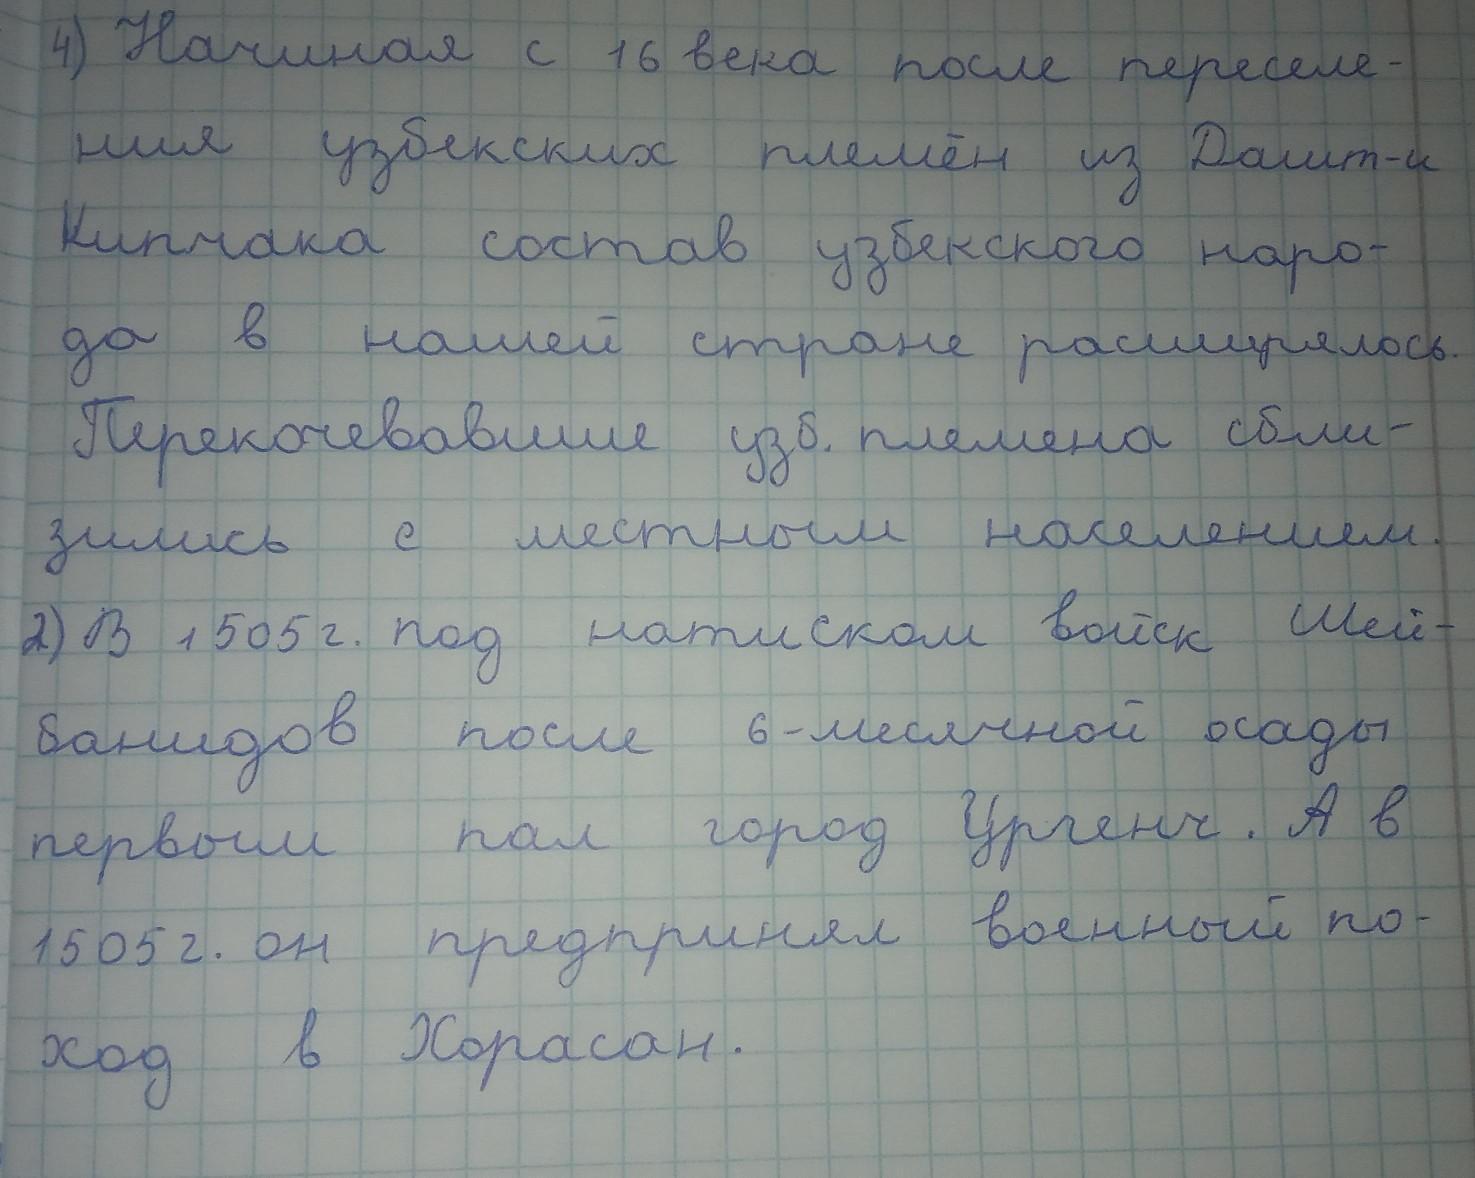 4) Начиная с 16 века после переселе-
ния узбекских племён из Дашт-и
Кипчака состав узбекского наро-
да в нашей стране расширялось.
Перекочевавшие узб. племена сбли-
зились с местным населением.
2) В 1505г. под натиском войск Шей-
банидов после 6-месячной осады
первым пал город Ургенч. А в
1505г. он предпринял военный по-
ход в Хорасан.